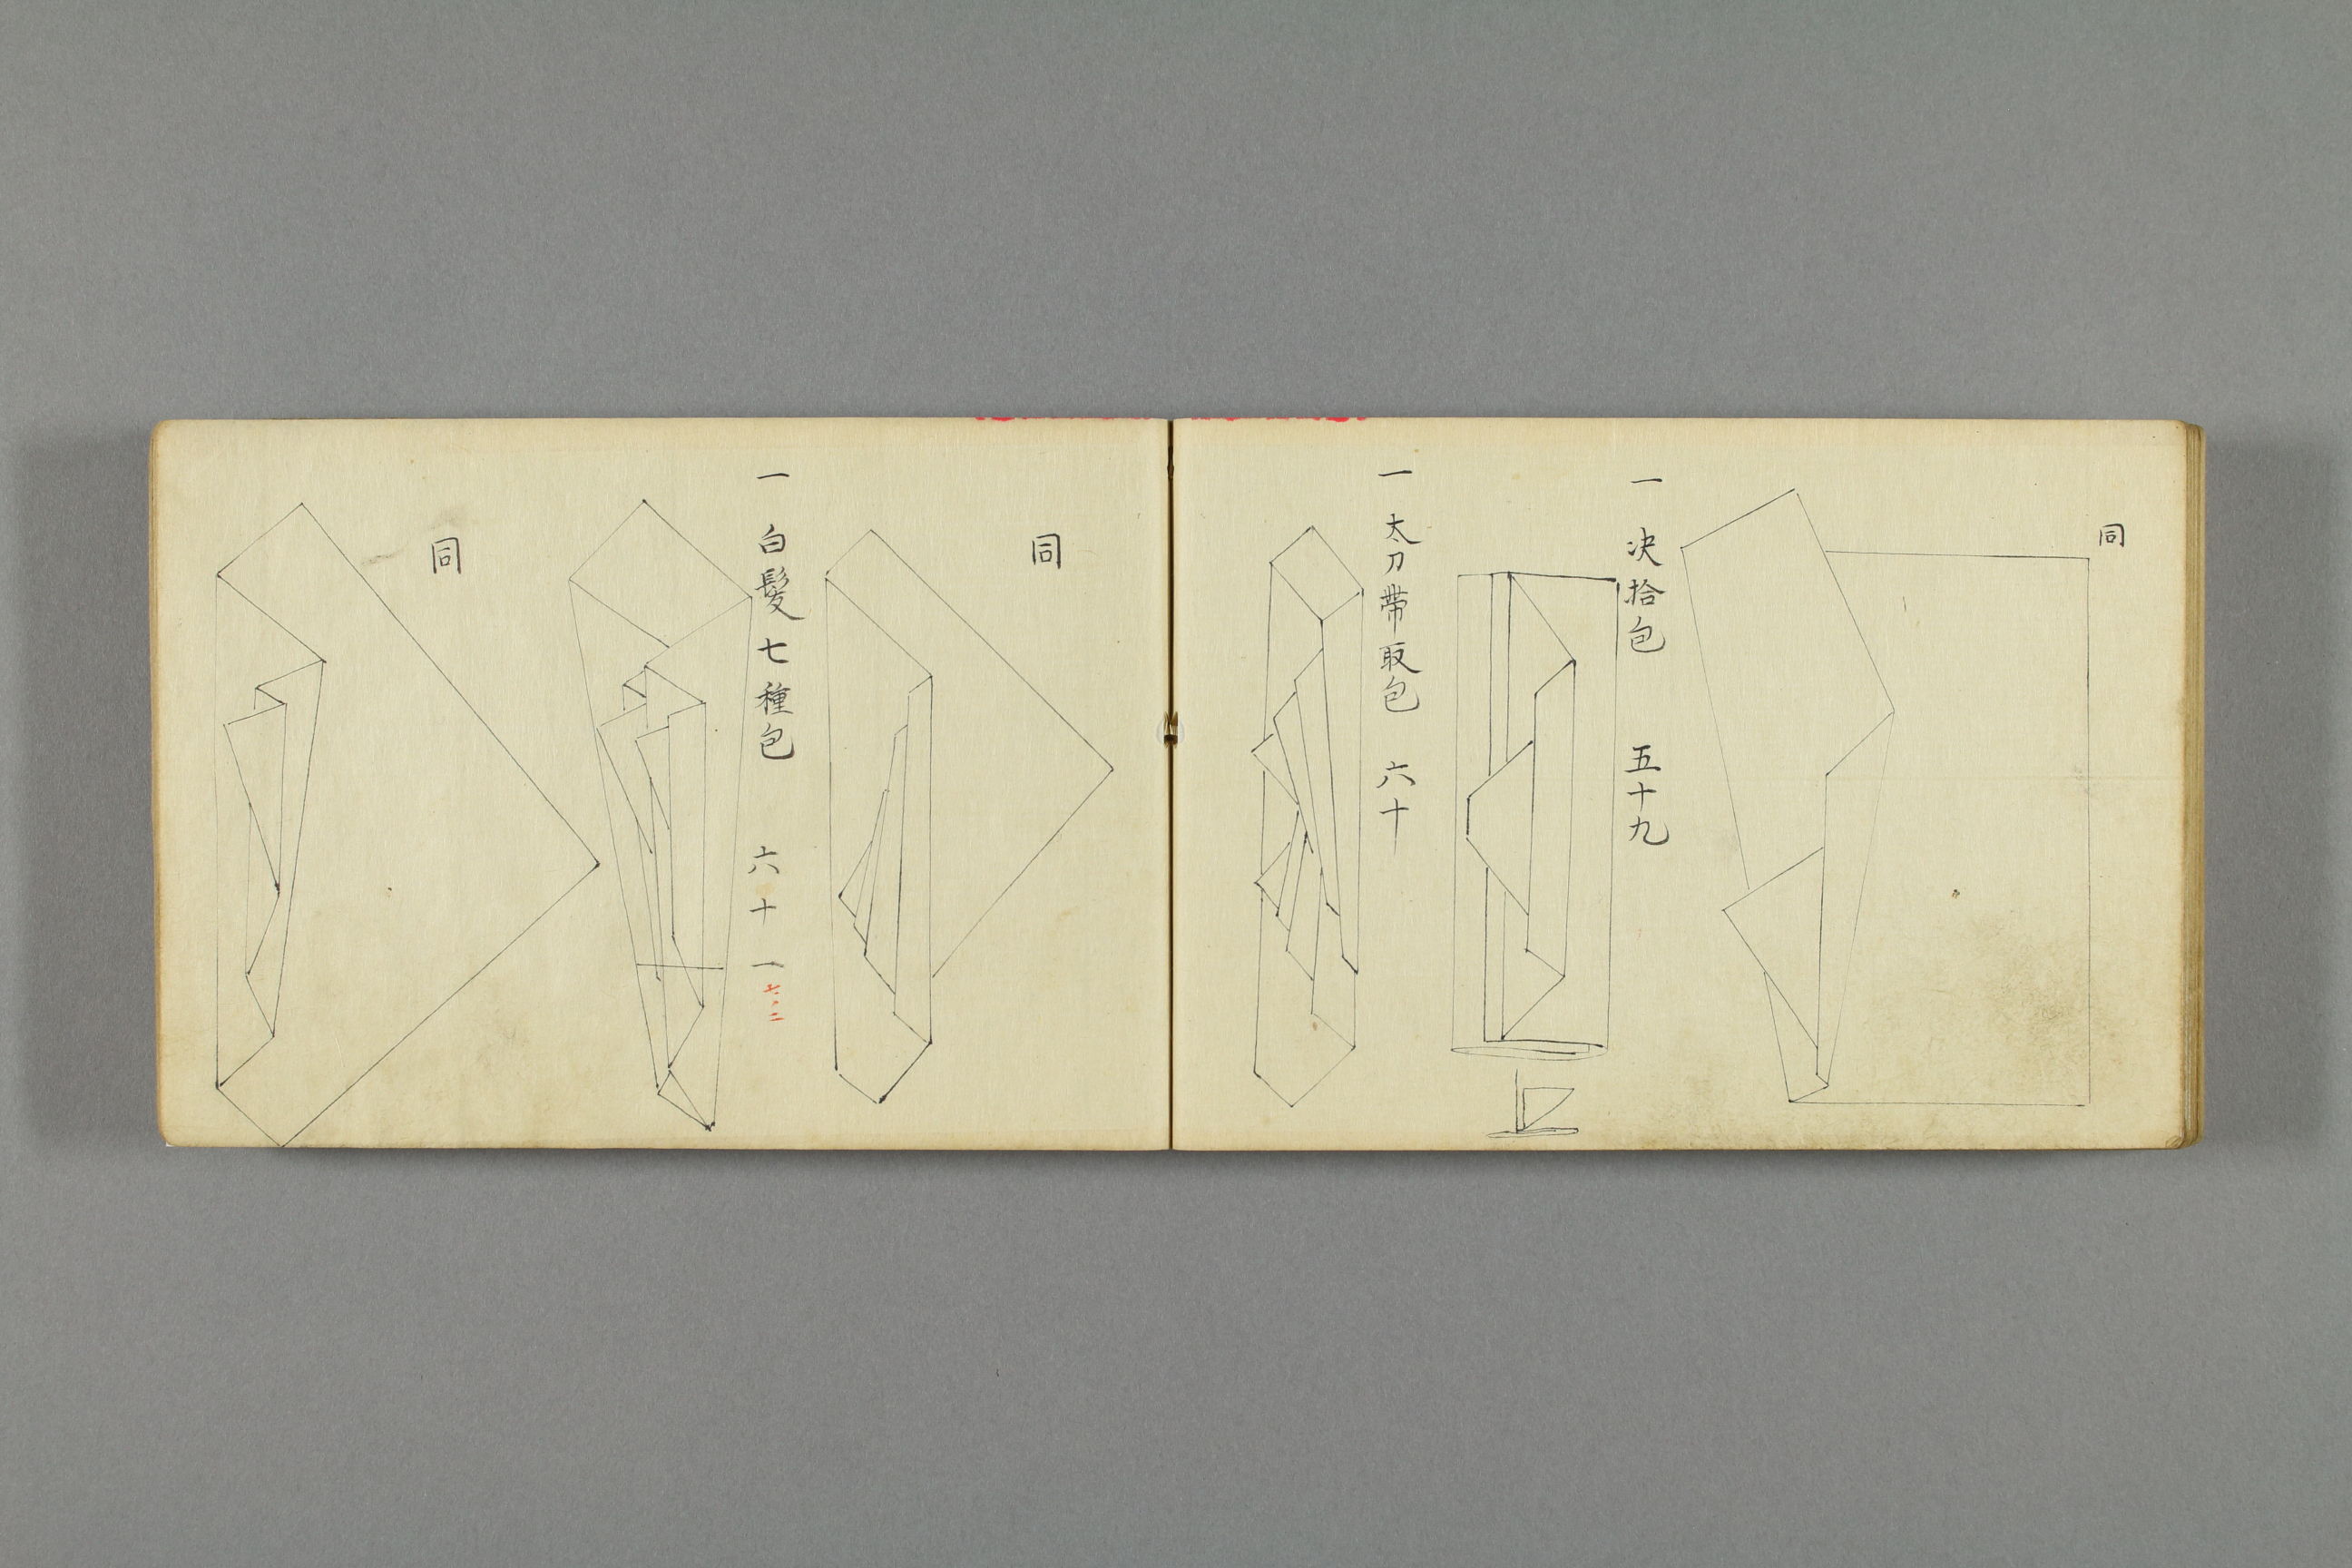 同
一 决拾包 五十九
一 太刀帯取包 六十
同
一 白髪七種包 六十一 七ノ二
同